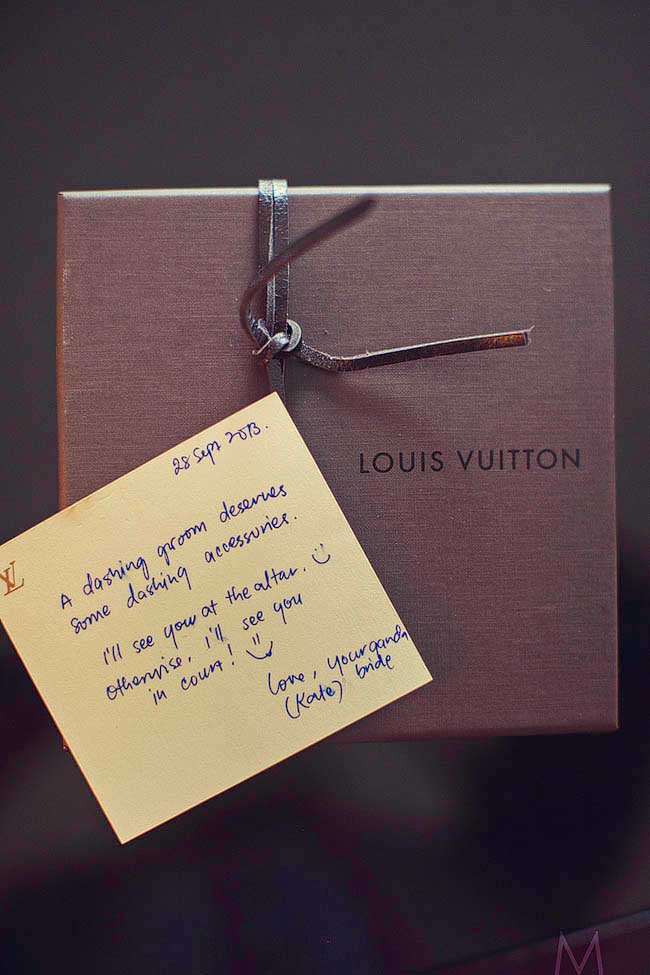 LOUIS VUITTON
LV
28 Sept 2013.
A dashing groom deserves
some dashing accessories.
I'll see you at the altar. :)
Otherwise, I'll see you
in court! :)
Love, your ganda
(Kate) bride
M